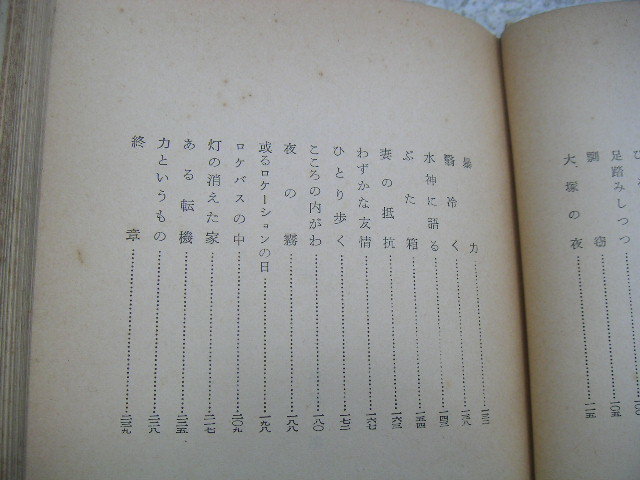 足踏みしつつ
大塚の夜……一一五
暴力……一三二
翳冷く……一三八
水神に語る……一四三
ぶた箱……一五四
妻の抵抗……一六三
わずかな友情……一六七
ひとり歩く……一七二
こころの内がわ……一八〇
夜の霧……一八八
或るロケーションの日……一九八
ロケバスの中……二〇九
灯の消えた家……二一七
ある転機……二二五
力というもの……二二八
終章……二三九